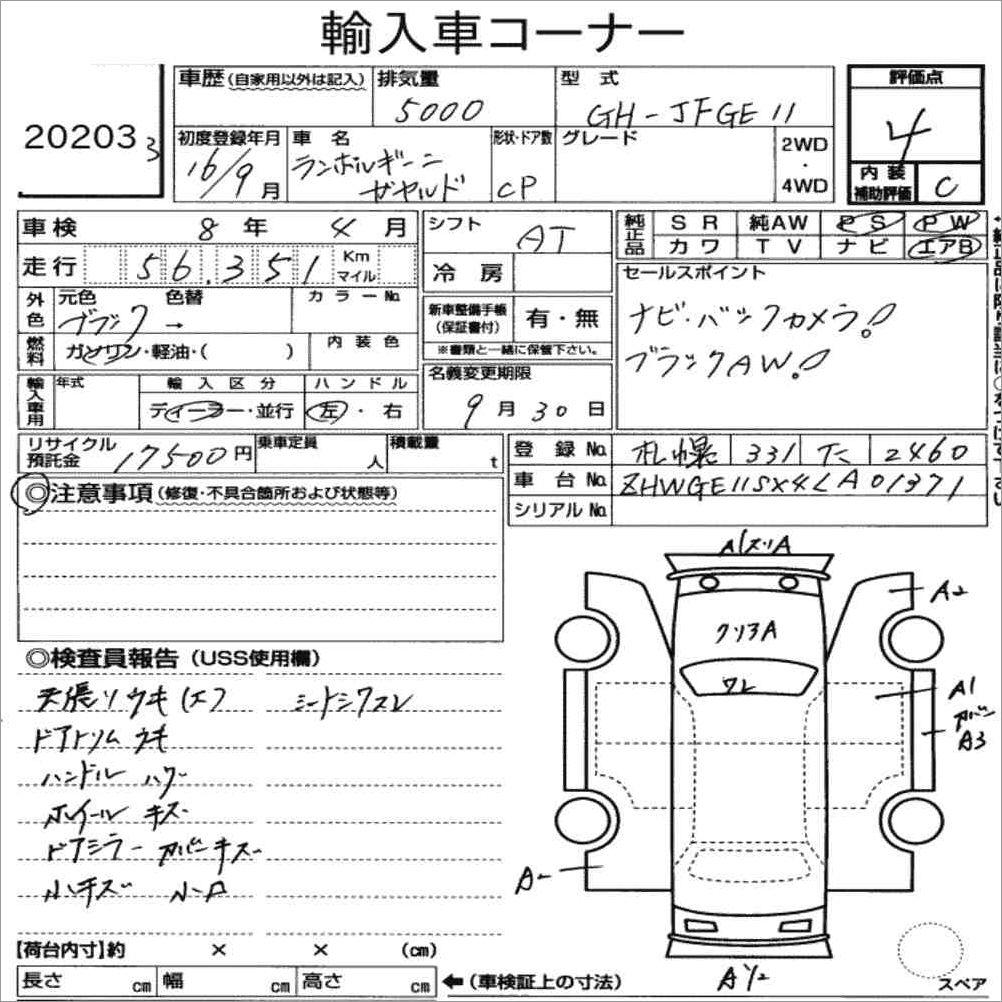 輸入車コーナー
20203 3
車歴(自家用以外は記入) 排気量 5000 型式 GH-JFGE11 評価点 4
初度登録年月 16/9月 車名 ランボルギーニ ガヤルド 形状・ドア数 CP グレード 2WD・4WD 内装補助評価 C
車検 8年 4月 シフト AT 純正品 SR 純AW PS PW
カワ TV ナビ エアB
走行 56,351 Km マイル 冷房 セールスポイント
外色 元色 ブラック 色替 → カラーNo. 新車整備手帳(保証書付) 有・無 ナビ・バックカメラ!
燃料 ガソリン・軽油・( ) 内装色 ※書類と一緒に保管下さい。 ブラックAW!
輸入車用 年式 輸入区分 ディーラー・並行 ハンドル 左・右 名義変更期限 9月30日
リサイクル預託金 17500円 乗車定員 人 積載量 t 登録No. 札幌 331 2460
◎注意事項(修復・不具合箇所および状態等) 車台No. ZHWGE11SX4LA01371
シリアルNo.
A1スリA
A2
クリアA
ワレ
A1
カバー
A3
A-
A1/2
スペア
◎検査員報告(USS使用欄)
天張リウキ(エ) シートシワスレ
ドアトリムウキ
ハンドルハゲ
ホイールキズ
ドアミラーカバーキズ
小キズ
【荷台内寸】約 × × (cm)
長さ cm 幅 cm 高さ cm ←(車検証上の寸法)